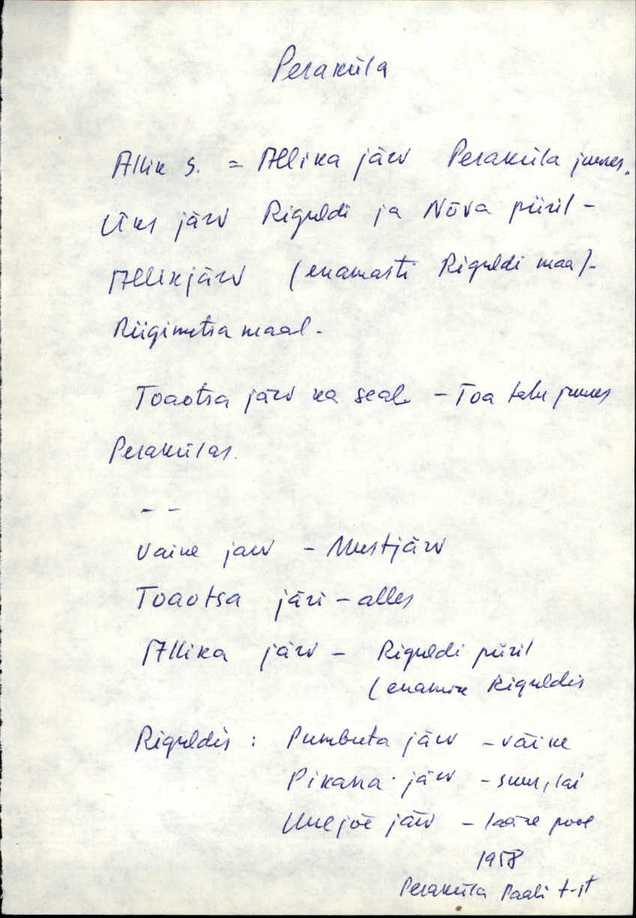 Peraküla
Allik s. = Allika järv Peraküla juures.
Üks järv Riguldi ja Nõva piiril -
Allikjärv (enamasti Riguldi maa)-
Riigimetsa maal.
Toaotsa järv ka seal - Toa talu juures
Perakülas.
- -
Väike järv - Mustjärv
Toaotsa järi - alles
Allika järv - Riguldi piiril
(enamik Riguldis
Riguldis: Pumbuta järv - väike
Pikana järv - suur, lai
Uuejõe järv - lääne pool
1958
Peraküla Paali t-st